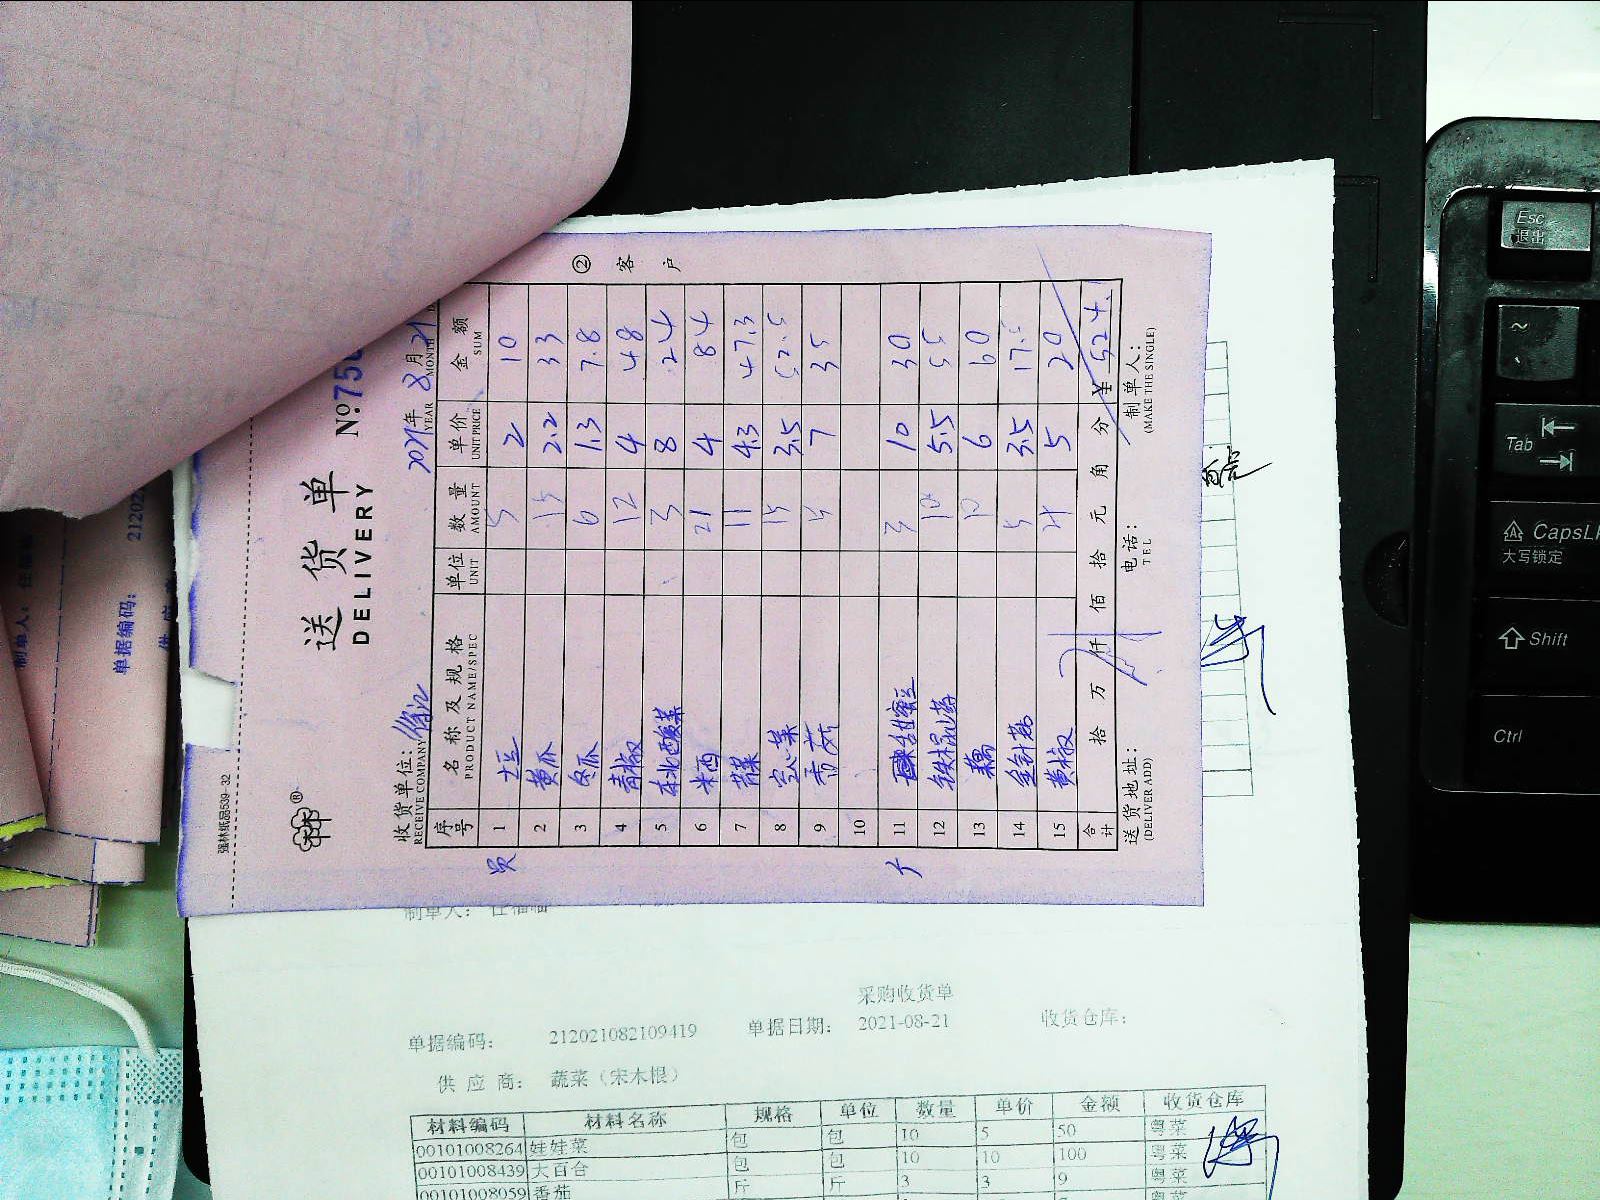 强林纸品539-32
®
送货单
DELIVERY
№:75
② 客户
收货单位:
RECEIVE COMPANY
2021年 8月 21
YEAR MONTH
序号 名称及规格 单位 数量 单价 金额
PRODUCT NAME/SPEC UNIT AMOUNT UNIT PRICE SUM
1 土豆 5 2 10
2 黄瓜 15 2.2 33
3 冬瓜 6 1.3 7.8
4 青椒 12 4 48
5 东北酸菜 3 8 24
6 21 4 84
7 11 4.3 47.3
8 空心菜 15 3.5 52.5
9 香菇 5 7 35
10
11 3 10 30
12 铁棍山药 10 5.5 55
13 藕 10 6 60
14 金针菇 5 3.5 17.5
15 黄椒 4 5 20
合计 拾 万 仟 佰 拾 元 角 分 ¥ 524.1
送货地址: 电话: 制单人:
(DELIVER ADD) TEL (MAKE THE SINGLE)
制单人: 任
单据编码: 21202
供应
制单人:
采购收货单
单据编码: 212021082109419 单据日期: 2021-08-21 收货仓库:
供应商: 蔬菜（宋木根）
材料编码 材料名称 规格 单位 数量 单价 金额 收货仓库
00101008264 娃娃菜 包 包 10 5 50 粤菜
00101008439 大百合 包 包 10 10 100 粤菜
00101008059 番茄 斤 斤 3 3 9 粤菜
Esc
退出
~
Tab
CapsL
大写锁定
Shift
Ctrl